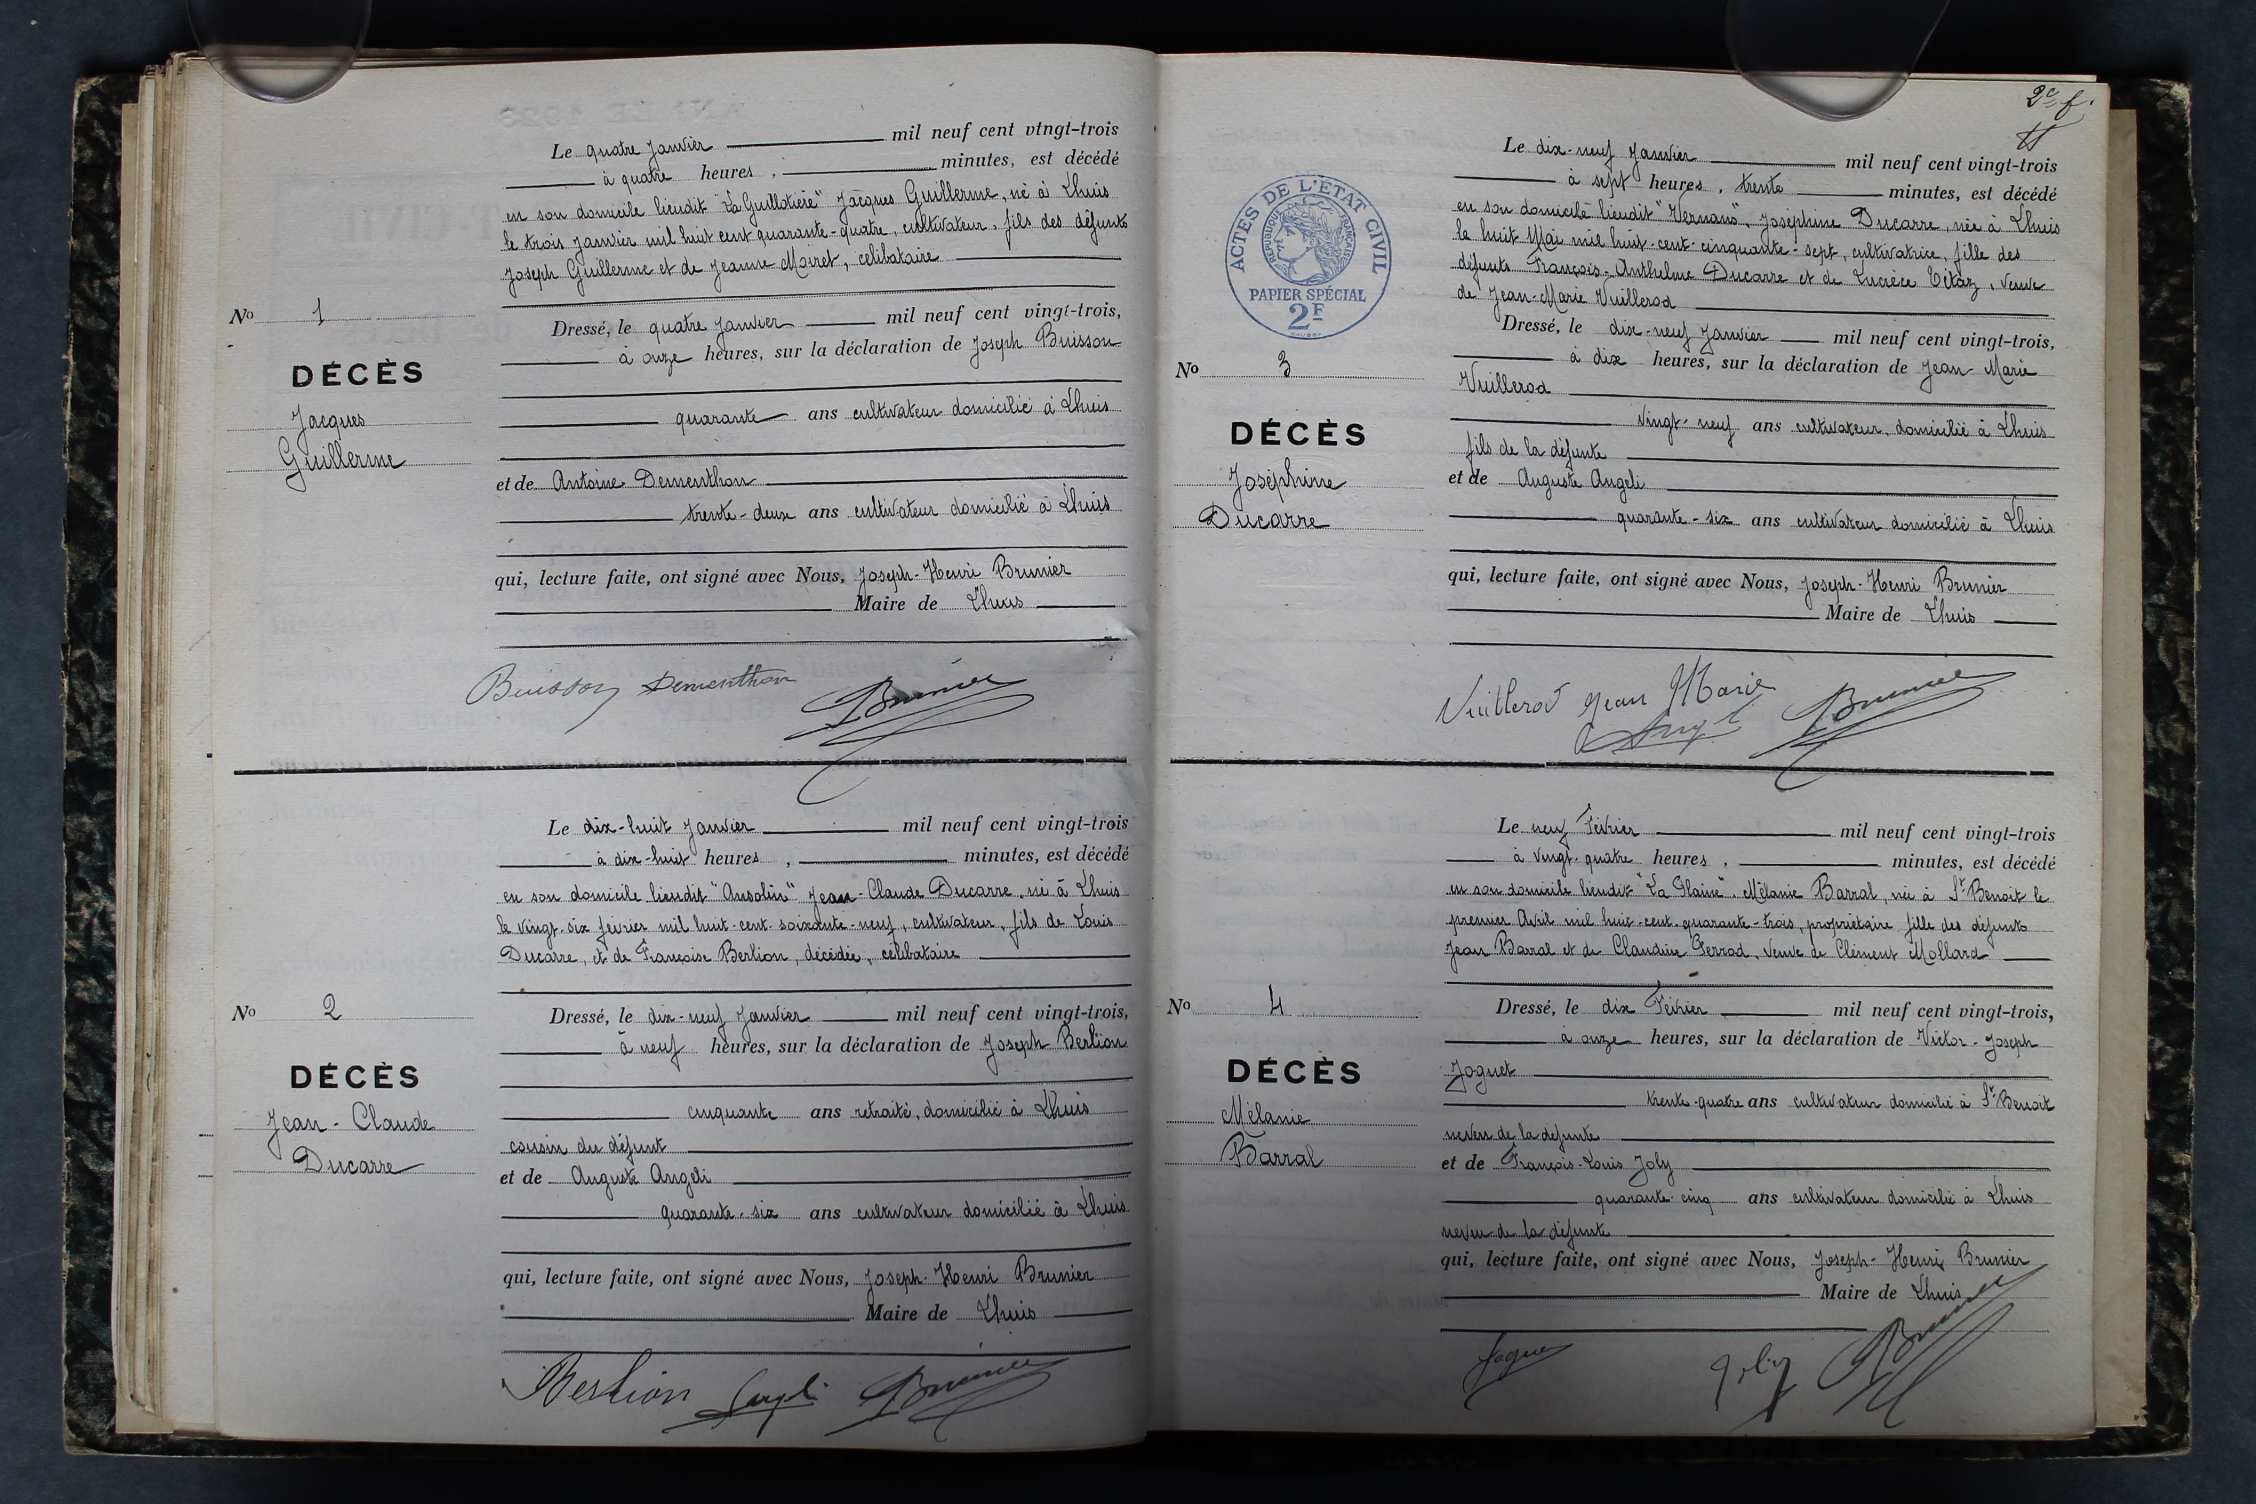 Le quatre Janvier mil neuf cent vingt-trois
à quatre heures, minutes, est décédé
en son domicile lieudit "La Guillotière" Jacques Guillerme, né à Lhuis
le trois janvier mil huit cent quarante-quatre, cultivateur, fils des défunts
Joseph Guillerme et de Jeanne Moiret, célibataire
No 1
DÉCÈS
Jacques
Guillerme
Dressé, le quatre Janvier mil neuf cent vingt-trois,
à onze heures, sur la déclaration de Joseph Buisson
quarante ans cultivateur domicilié à Lhuis
et de Antoine Dementhon
trente-deux ans cultivateur domicilié à Lhuis
qui, lecture faite, ont signé avec Nous, Joseph-Henri Brunier
Maire de Lhuis
Buisson Dementhon Brunier
Le dix-huit Janvier mil neuf cent vingt-trois
à dix-huit heures, minutes, est décédé
en son domicile lieudit "Ansolin" Jean-Claude Ducarre, né à Lhuis
le vingt-six février mil huit-cent-soixante-neuf, cultivateur, fils de Louis
Ducarre, et de Françoise Berlion, décédée, célibataire
No 2
DÉCÈS
Jean-Claude
Ducarre
Dressé, le dix-neuf Janvier mil neuf cent vingt-trois,
à neuf heures, sur la déclaration de Joseph Berlion
cinquante ans retraité, domicilié à Lhuis
cousin du défunt
et de Auguste Angeli
quarante-six ans cultivateur domicilié à Lhuis
qui, lecture faite, ont signé avec Nous, Joseph-Henri Brunier
Maire de Lhuis
Berlion Angeli Brunier
2e f.
ACTES DE L'ÉTAT CIVIL
RÉPUBLIQUE FRANÇAISE
PAPIER SPÉCIAL
2F
Le dix-neuf Janvier mil neuf cent vingt-trois
à sept heures, trente minutes, est décédé
en son domicile lieudit "Vernans", Joséphine Ducarre, née à Lhuis
le huit Mai mil huit-cent-cinquante-sept, cultivatrice, fille des
défunts François-Anthelme Ducarre et de Lucrèce Tétaz, veuve
de Jean-Marie Vuillerod
No 3
DÉCÈS
Joséphine
Ducarre
Dressé, le dix-neuf Janvier mil neuf cent vingt-trois,
à dix heures, sur la déclaration de Jean-Marie
Vuillerod
vingt-neuf ans cultivateur, domicilié à Lhuis
fils de la défunte
et de Auguste Angeli
quarante-six ans cultivateur domicilié à Lhuis
qui, lecture faite, ont signé avec Nous, Joseph-Henri Brunier
Maire de Lhuis
Vuillerod Jean Marie Brunier
Angeli
Le neuf Février mil neuf cent vingt-trois
à vingt-quatre heures, minutes, est décédé
en son domicile lieudit "La Plaine", Mélanie Barral, née à St Benoit le
premier Avril mil huit-cent-quarante-trois, propriétaire fille des défunts
Jean Barral et de Claudine Perrod, veuve de Clément Mollard
No 4
DÉCÈS
Mélanie
Barral
Dressé, le dix Février mil neuf cent vingt-trois,
à onze heures, sur la déclaration de Victor-Joseph
Joguet
trente-quatre ans cultivateur domicilié à St Benoit
neveu de la défunte
et de François-Louis Joly
quarante-cinq ans cultivateur domicilié à Lhuis
neveu de la défunte
qui, lecture faite, ont signé avec Nous, Joseph-Henri Brunier
Maire de Lhuis
Joguet Joly Brunier